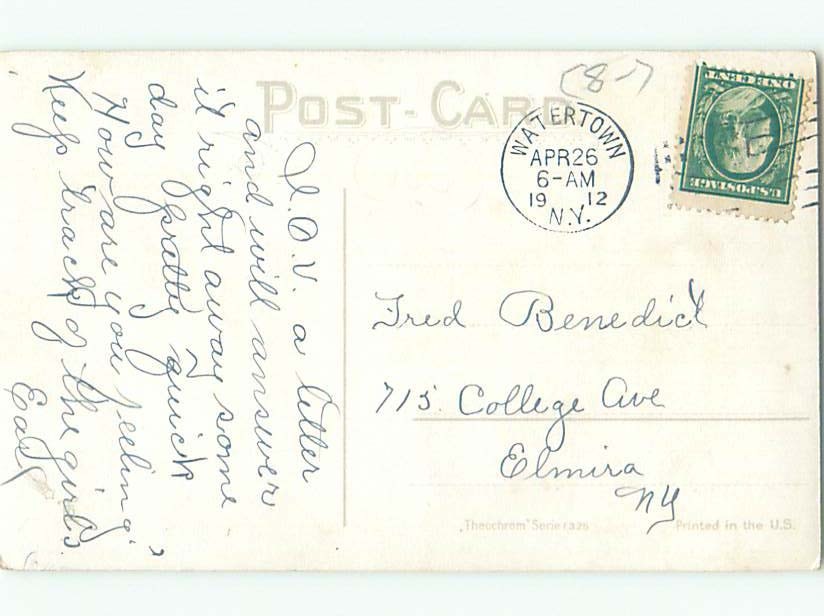 POST-CARD
(8-7
WATERTOWN
APR 26
6-AM
19 12
N.Y.
U.S. POSTAGE
ONE CENT
I.O.U. a letter
and will answer
it right away some
day pretty quick
How are you feeling?
Keep track of the girls.
Earl
Fred Benedict
715 College Ave
Elmira
NY
„Theochrom" Serie 1325
Printed in the U.S.